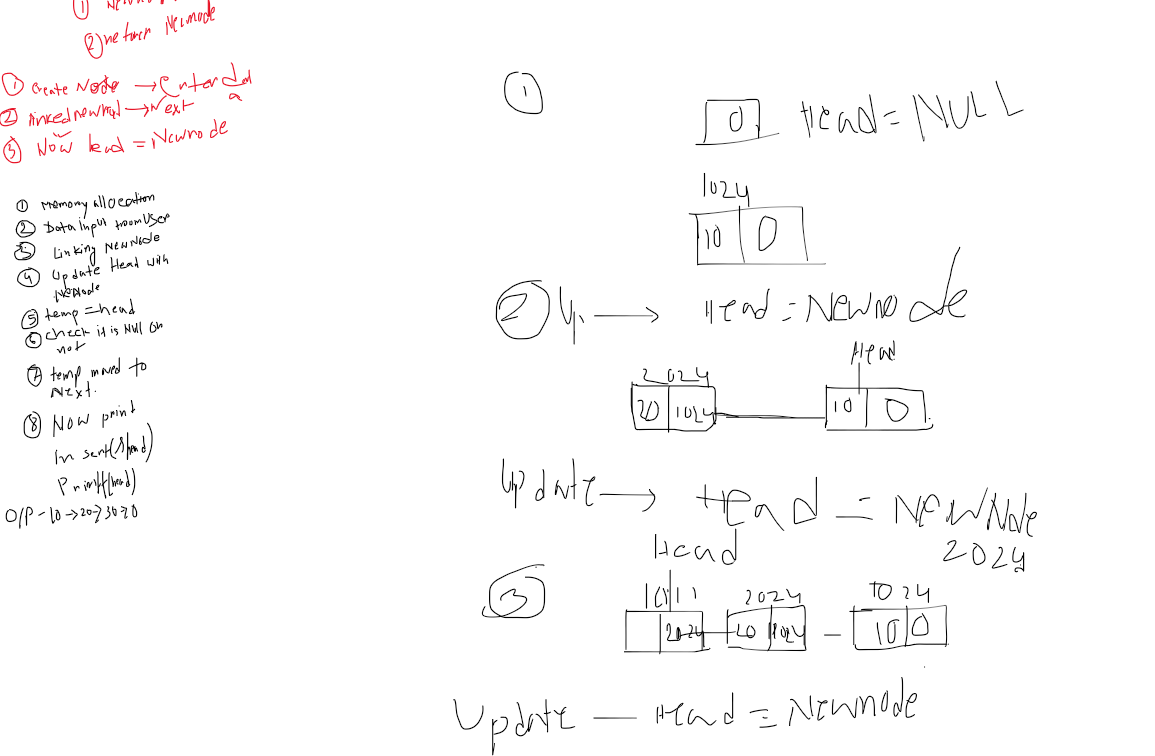 ①
② return Newnode
① Create Node → Enter data
② linked newnod → Next
③ Now head = Newnode
① Memory allocation
② Data Input from User
③ Linking NewNode
④ Update Head with
NewNode
⑤ temp = head
⑥ check it is Null or
not
⑦ temp moved to
Next.
⑧ Now print
Insert(&head)
Printf(head)
O/P - 10 → 20 → 30 → 0
①
0 Head = NULL
1024
10 0
② Up → Head = Newnode
Head
2024
20 1024 10 0
Update → Head = NewNode
2024
Head
③
1011 2024 1024
2024 20 1024 - 10 0
Update — Head = Newnode